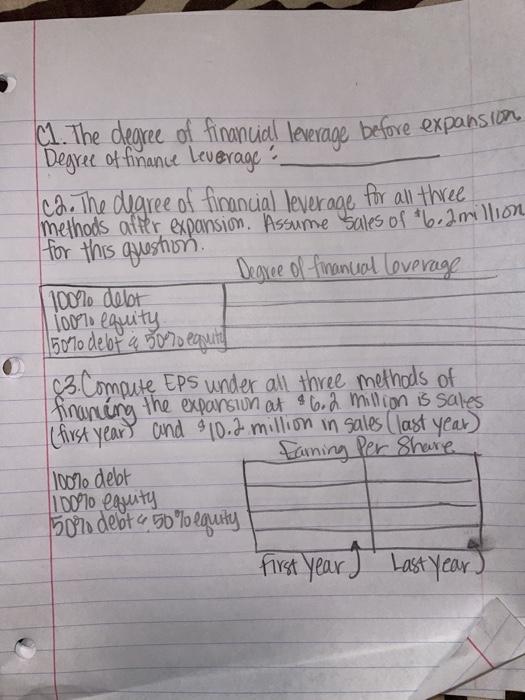 C1. The degree of financial leverage before expansion
Degree of finance Leverage:
C2. The degree of financial leverage for all three
methods after expansion. Assume sales of $6.2 million
for this question.
Degree of financial Loverage
100% debt
100% equity
50% debt & 50% equity
C3. Compute EPS under all three methods of
financing the expansion at $6.2 million is sales
(first year) and $10.2 million in sales (last year)
Earning Per Share
100% debt
100% equity
50% debt & 50% equity
first Year Last Year